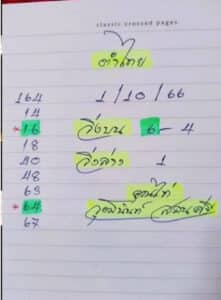 classic crossed pages
คำไทย
164 1/10/66
14
*16 วิ่งบน 6-4
18
40 วิ่งล่าง 1
48
63
*64
67